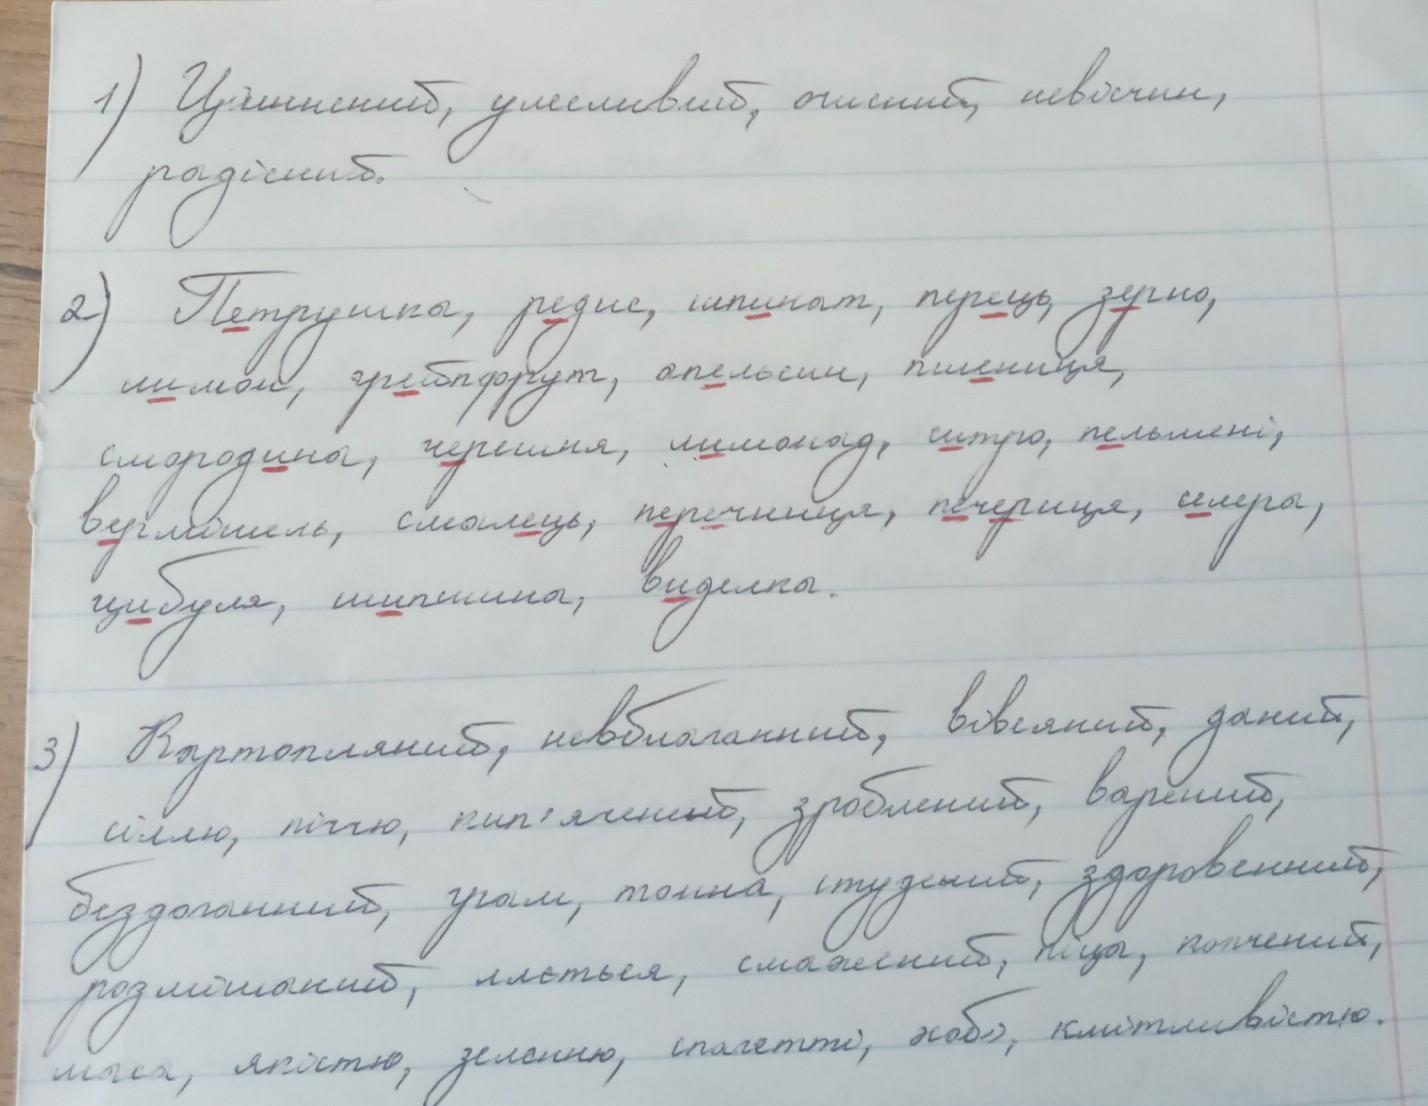 1) Цілинний, улесливий, очисний, невісчин,
радісний.
2) Петрушка, редис, шпинат, перець, зерно,
лимон, грейпфрут, апельсин, пшениця,
смородина, черешня, лимонад, ситро, пельмені,
вермішель, смалець, перечниця, печериця, селера,
цибуля, шипшина, виделка.
3) Картопляний, невблаганний, вівсяний, даний,
сіллю, піччю, кип'ячений, зроблений, варений,
бездоганний, грам, тонна, студений, здоровенний,
розмішаний, ллється, смажений, піца, копчений,
маса, якістю, зеленню, спагетті, хобі, кмітливістю.